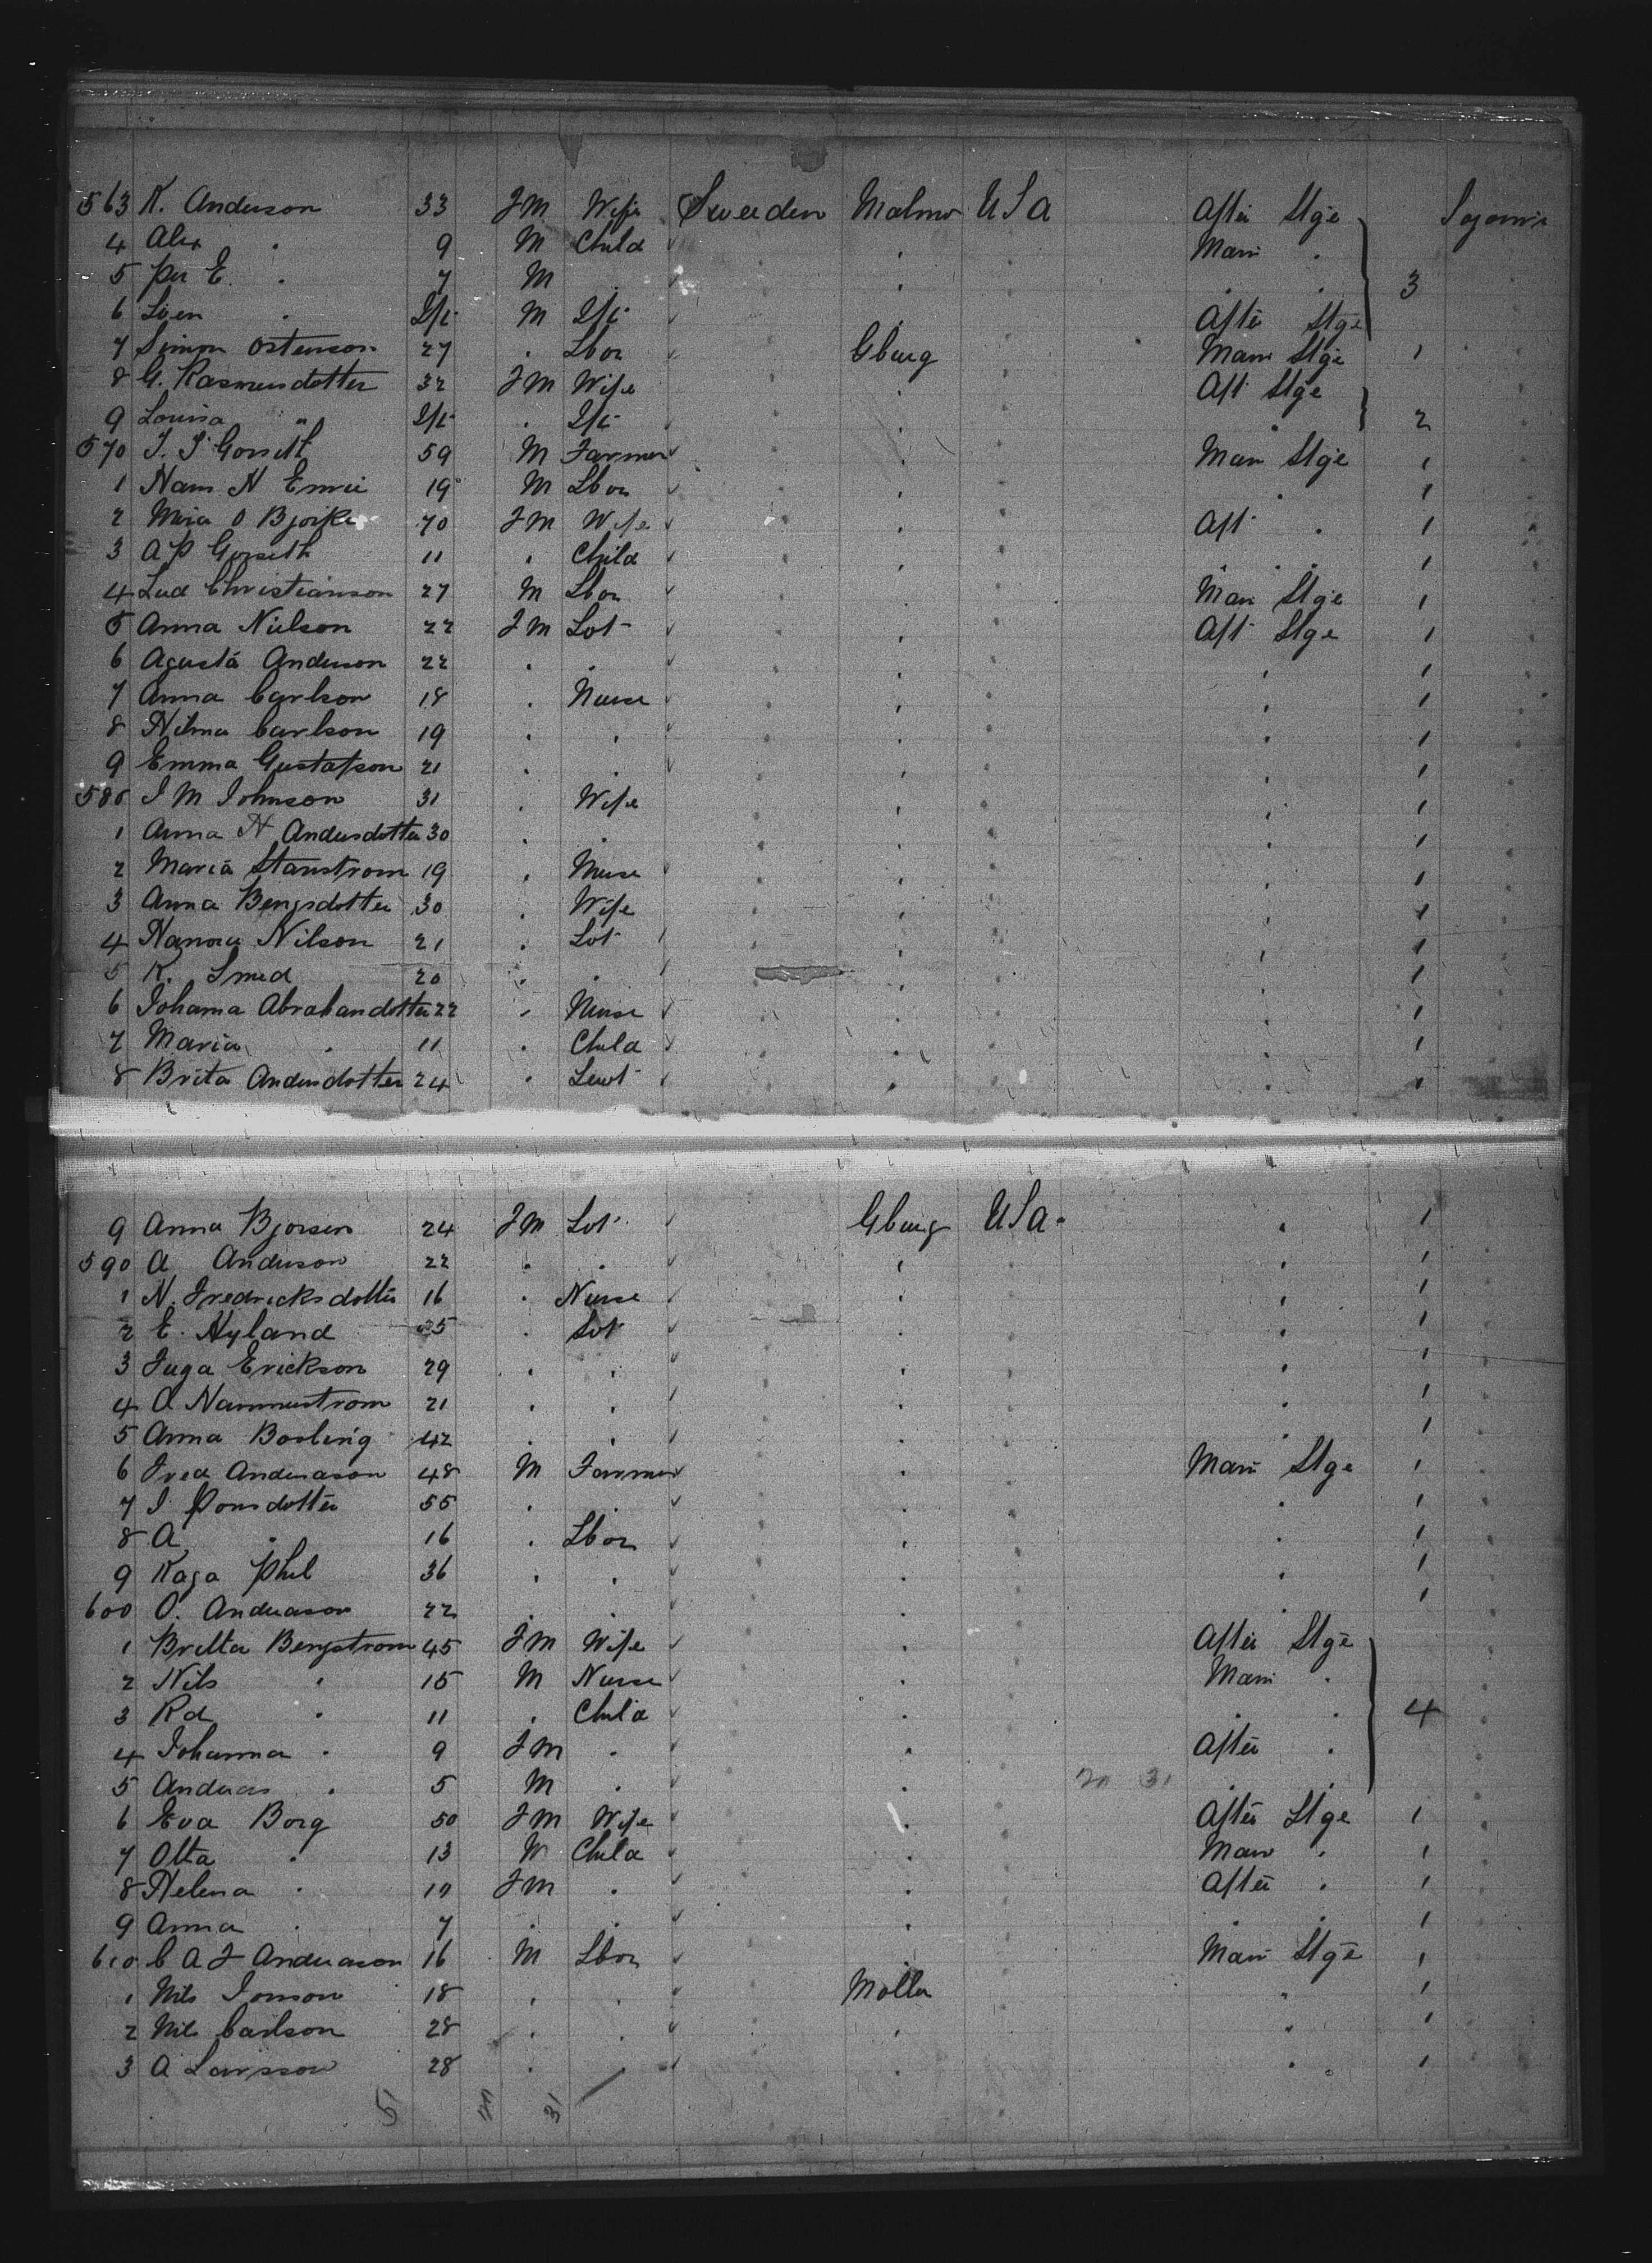 563 K. Anderson 33 FM Wife Sweeden Malmo USa After Stge Sojourn
4 Alex . 9 M Child . Main .
5 Per E. . 7 M . . . . 3
6 Sven . Inft M Inft . After Stge
7 Simon Ostenson 27 . Lbor Gburg Main Stge 1
8 G. Rasmusdotter 32 FM Wife . Aft Stge
9 Louisa " Inft . Inft . . 2
570 59 M Farmer . Main Stge 1
1 19 M Lbor . . 1
2 O 70 FM Wife . Aft . 1
3 A P Gorseth 11 . Child . . . 1
4 Lud Christianson 27 M Lbor . Main Stge 1
5 Anna Nielson 22 FM Sot . Aft Stge 1
6 Agusta Anderson 22 . . . . 1
7 Anna Carlson 18 . Nurse . . 1
8 Hilma Carlson 19 . . . . 1
9 Emma Gustafson 21 . . . . 1
580 I M Johnson 31 . Wife . . 1
1 Anna H Andersdotter 30 . . . . 1
2 Maria Stanstrom 19 . Nurse . . 1
3 Anna Bengsdotter 30 . Wife . . 1
4 Nilson 21 . Sot . . 1
5 K. Smed 20 . . . . 1
6 Johana Abrahandotter 22 . Nurse . . 1
7 Maria . 11 . Child . . 1
8 Brita Andersdotter 24 . Sevt . . 1
9 Anna Bjorsen 24 FM Sot Gburg USa . 1
590 A Anderson 22 . . . . 1
1 N. Fredricksdotter 16 . Nurse . . 1
2 E. Hyland 25 . Sot . . 1
3 Inga Erickson 29 . . . . 1
4 A Hammustrom 21 . . . . 1
5 Anna Bosling 42 . . . . 1
6 Fred Anderason 48 M Farmer . Main Stge 1
7 I Ponsdotter 55 . . . . 1
8 A . 16 . Lbor . . 1
9 Kaga Phil 36 . . . . 1
600 O. Anderason 22 . . . . 1
1 Britta Bergstrom 45 FM Wife . After Stge
2 Nils . 15 M Nurse . Main .
3 Rd . 11 . Child . . . 4
4 Johanna . 9 FM . . After .
5 Andreas . 5 M . . 20 31 . .
6 Eva Borg 50 FM Wife . After Stge 1
7 Otta . 13 M Child . Main . 1
8 Helena . 10 FM . . After . 1
9 Anna . 7 . . . . . 1
610 C A F Anderason 16 M Lbor . Main Stge 1
1 Nils Jonson 18 . . Molla " 1
2 Nils Carlson 28 . . . " 1
3 A Larsson 28 . . . 1
51 20 31